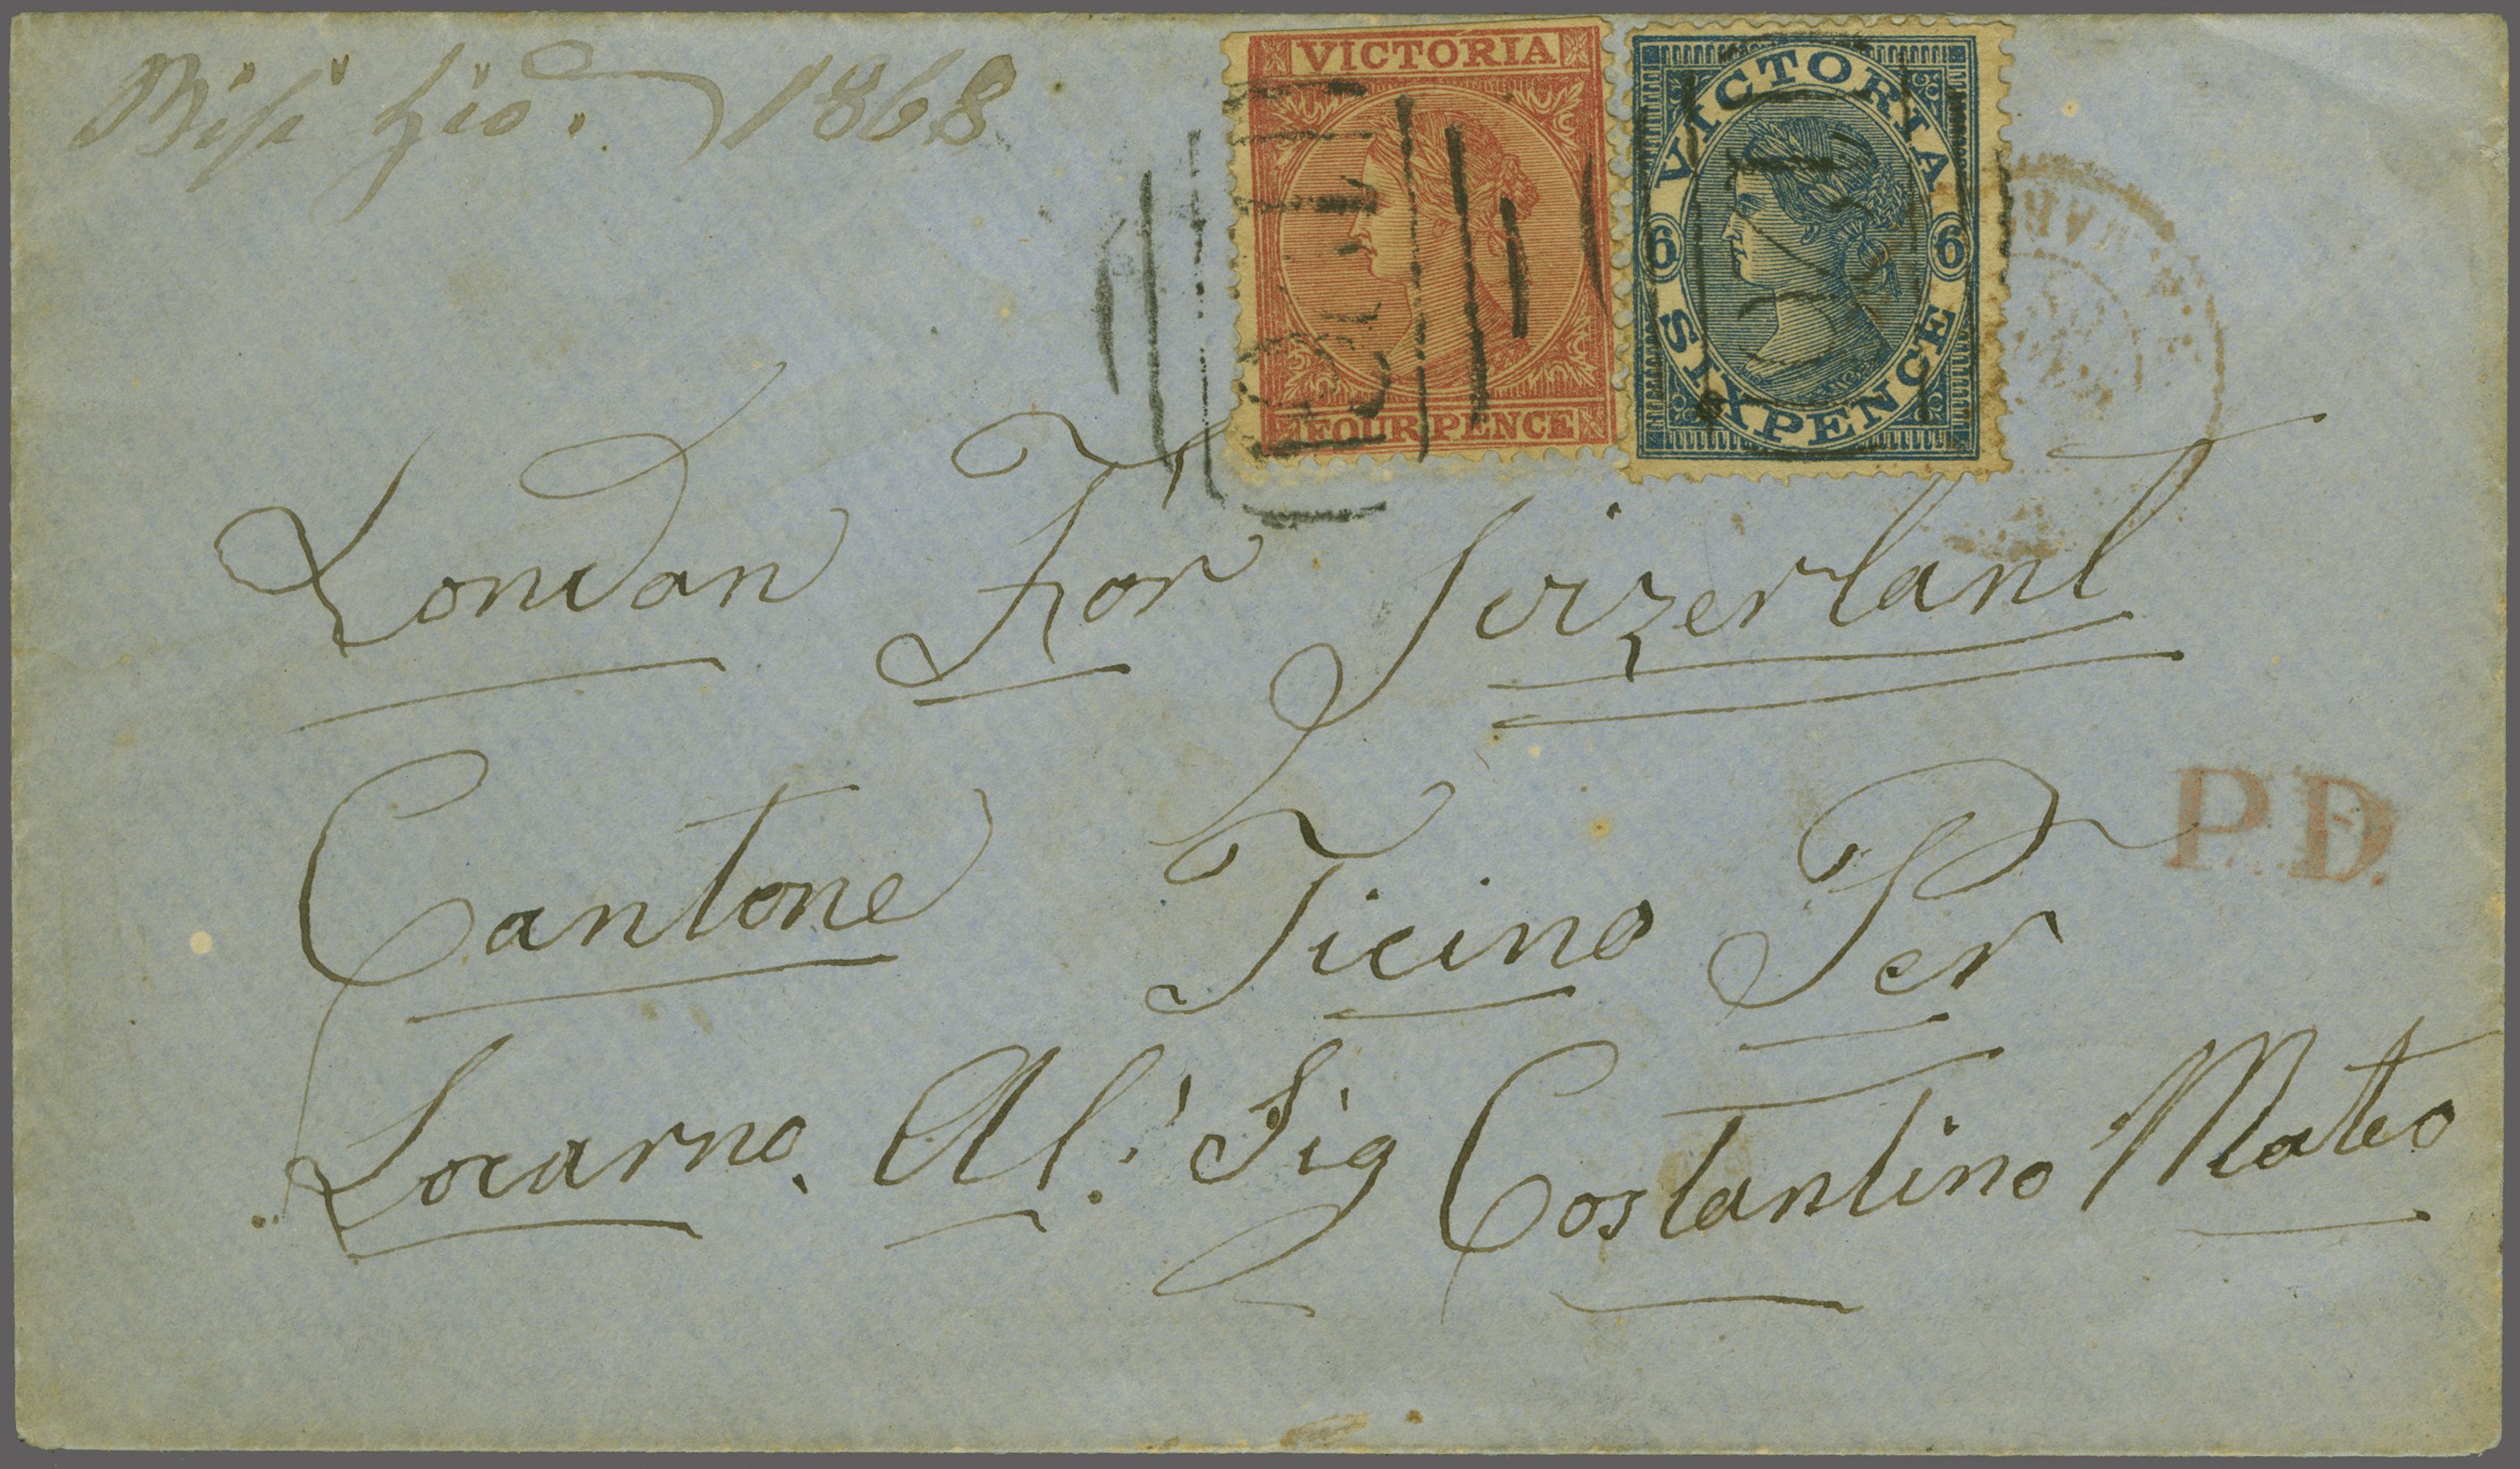 1868
VICTORIA
FOUR PENCE
VICTORIA
6 6
SIXPENCE
London For Svizerlant
P.D.
Cantone Ticino Per
Locarno. Al. Sig Costantino Mateo